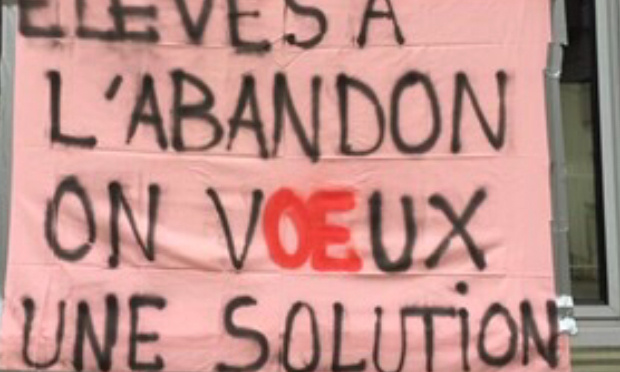 ELEVES A
L'ABANDON
ON VOEUX
UNE SOLUTiON